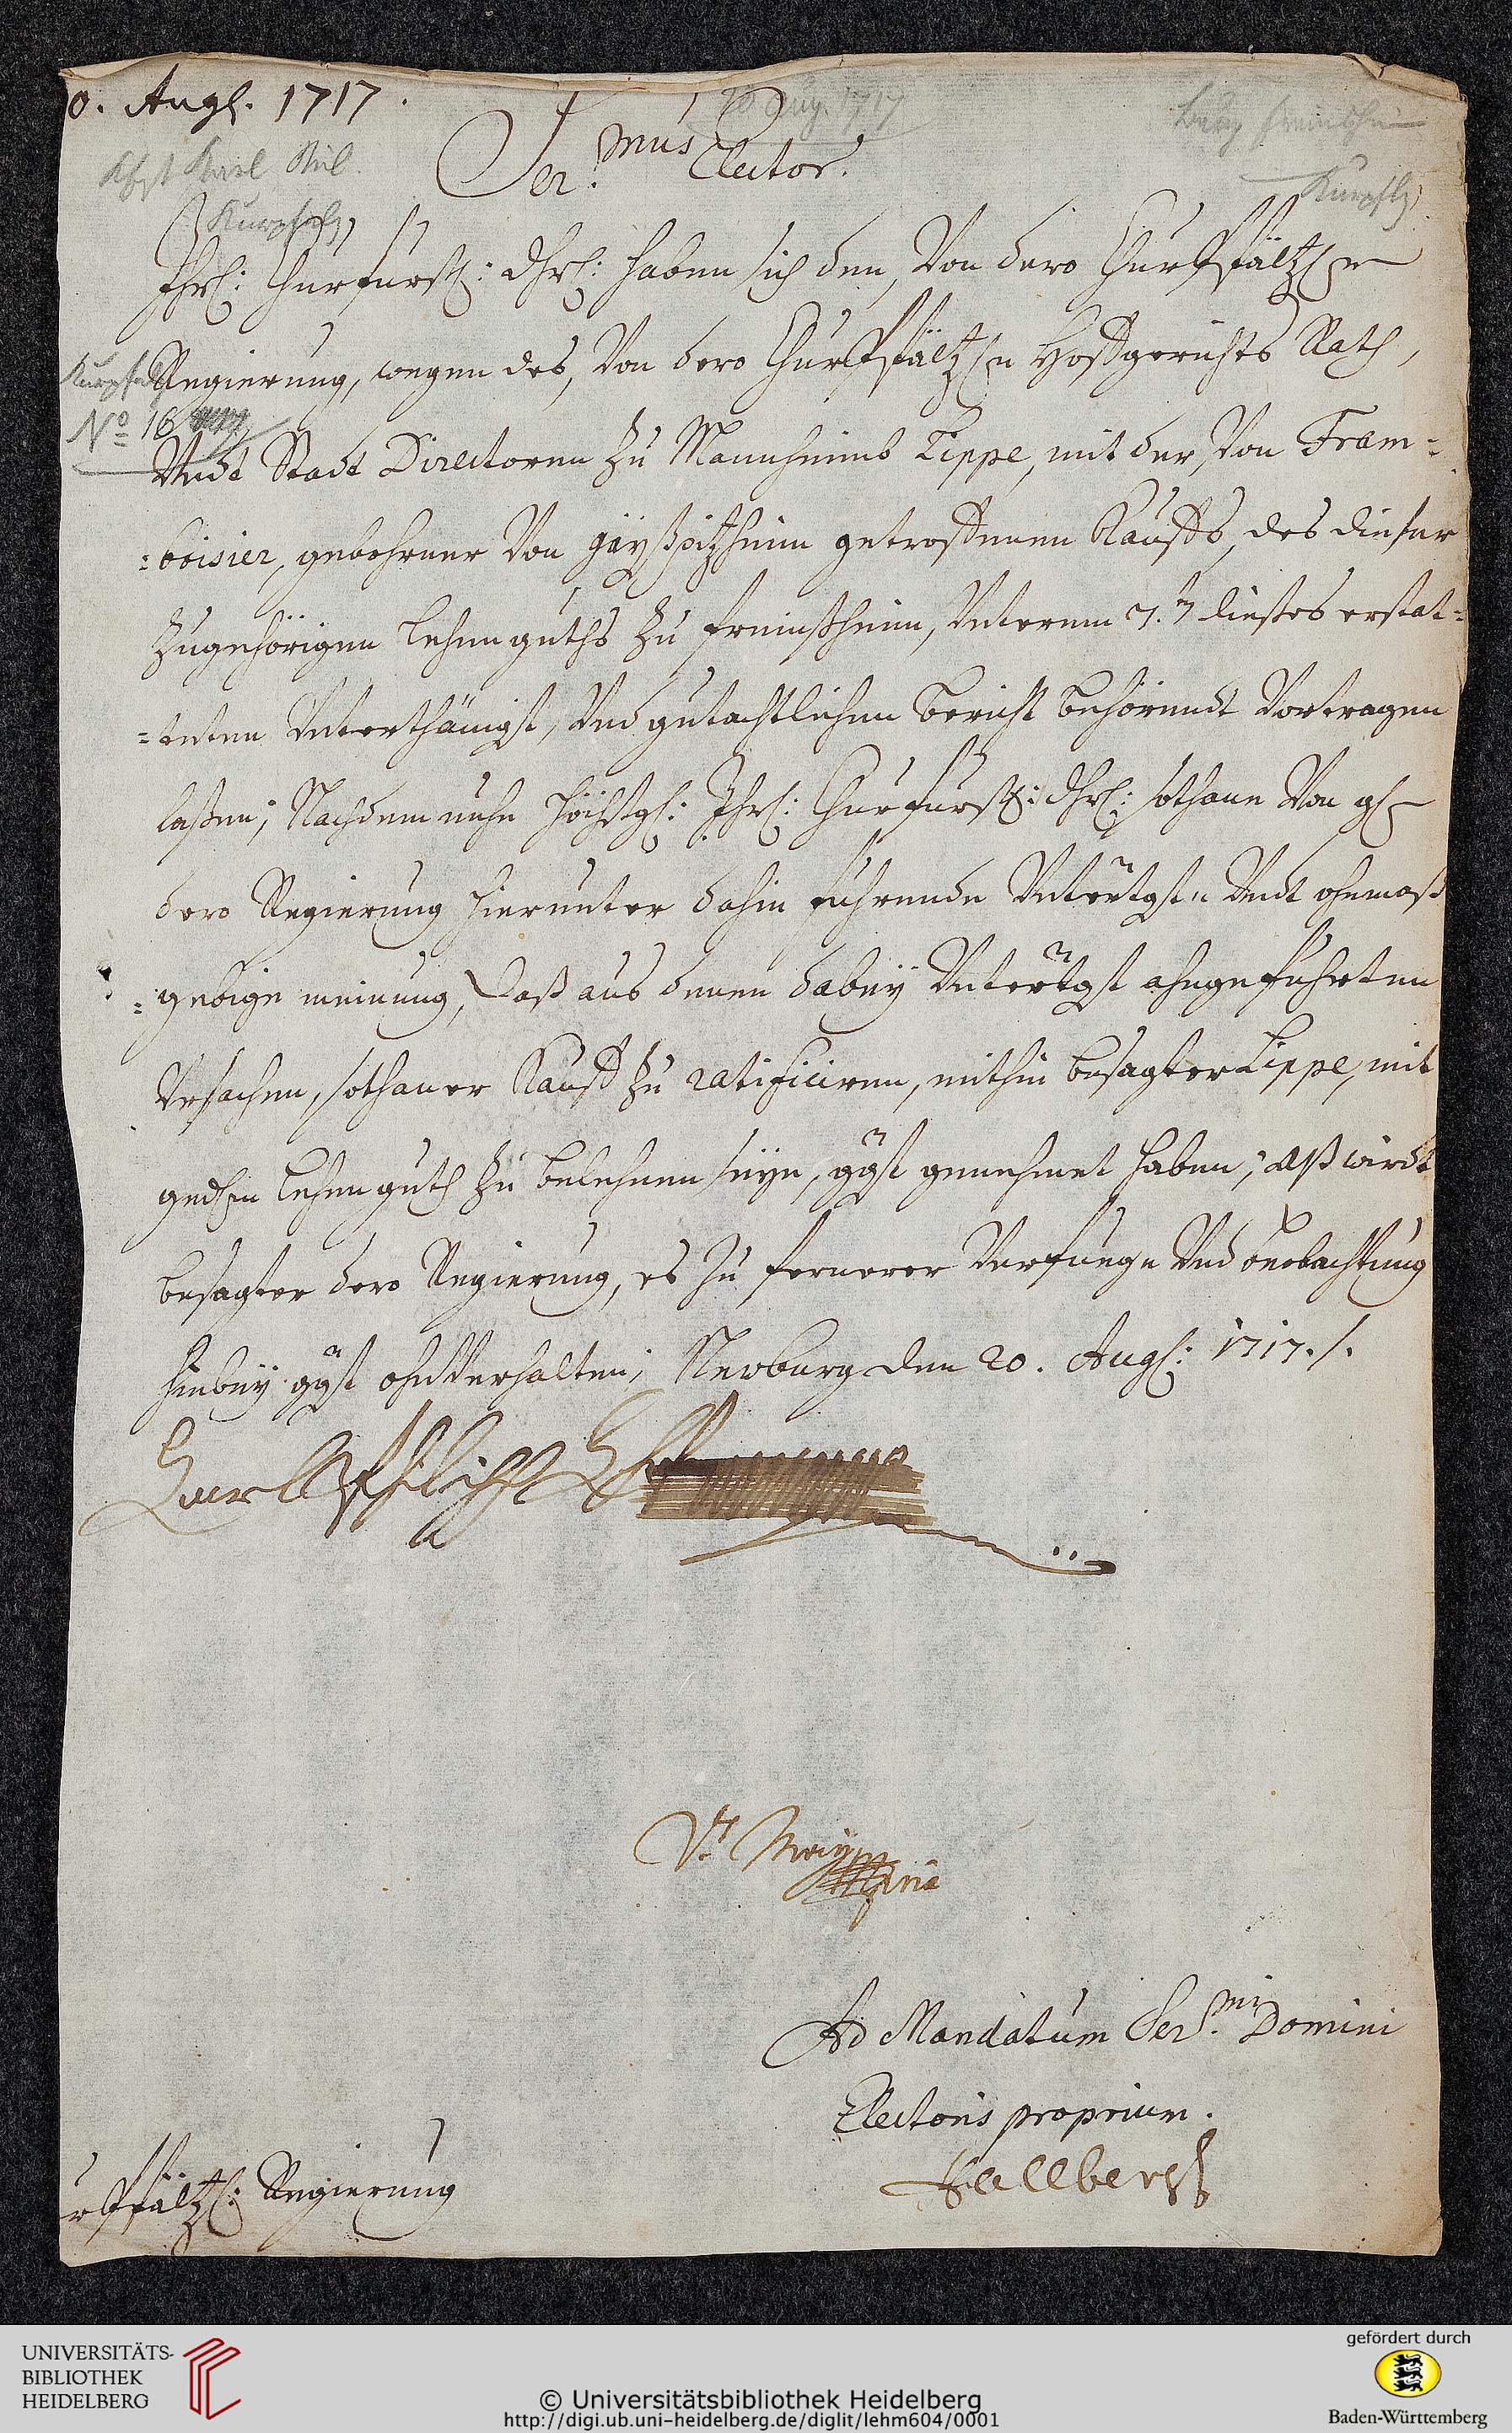 0. Aug. 1717.
20 Aug. 1717
Kfst Karl Phil.
Kurpfalz
Kurpflz
Ser.mus Elector.
Ihrl: Churfürstl: dhrl: haben sich den, Von dero ChurPfältz
Regierung, wegen des, Von dero ChurPfältzen Hoffgerichts Rath,
Kurpfalz
No 16
Undt Stadt Directoren zu Mannheimb Lippe, mit der, Von Fram-
=boisier, gebohrner Von gayßpitzheim getroffenen Kauffs, des dieser
zugehörigen Lehen guths zu freinßheim, Unterem 7. dießes erstat=
=teten Unterthänigst, Und gutachtlichen bericht behörendt Vortragen
laßen; Nachdem nuhn höchstgl: Ihrl: Churfürstl: dhrl: sothane Von gl
dero Regierung hierunter dahin führende Untertgst: Undt ohnmaß
=gebige meinung, daß aus denen dabey Untertgst ahngeführten
Ursachen, sothaner Kauff zu ratificiren, mithin besagter Lippe, mit
gedhn Lehen guth zu belehnen seye, ggst genehmet haben; Alß wirdt
besagter dero Regierung, es zu fernerer Verfuege Und beobachtung
hiebey ggst ohnVerhalten; Newburg den 20. Augl: 1717./.
Carl Philipp
Vt
Ad Mandatum Ser.mi Domini
Electoris proprium.
Hallberg
rPfältzl: Regierung
UNIVERSITÄTS-
BIBLIOTHEK
HEIDELBERG
© Universitätsbibliothek Heidelberg
http://digi.ub.uni-heidelberg.de/diglit/lehm604/0001
gefördert durch
Baden-Württemberg